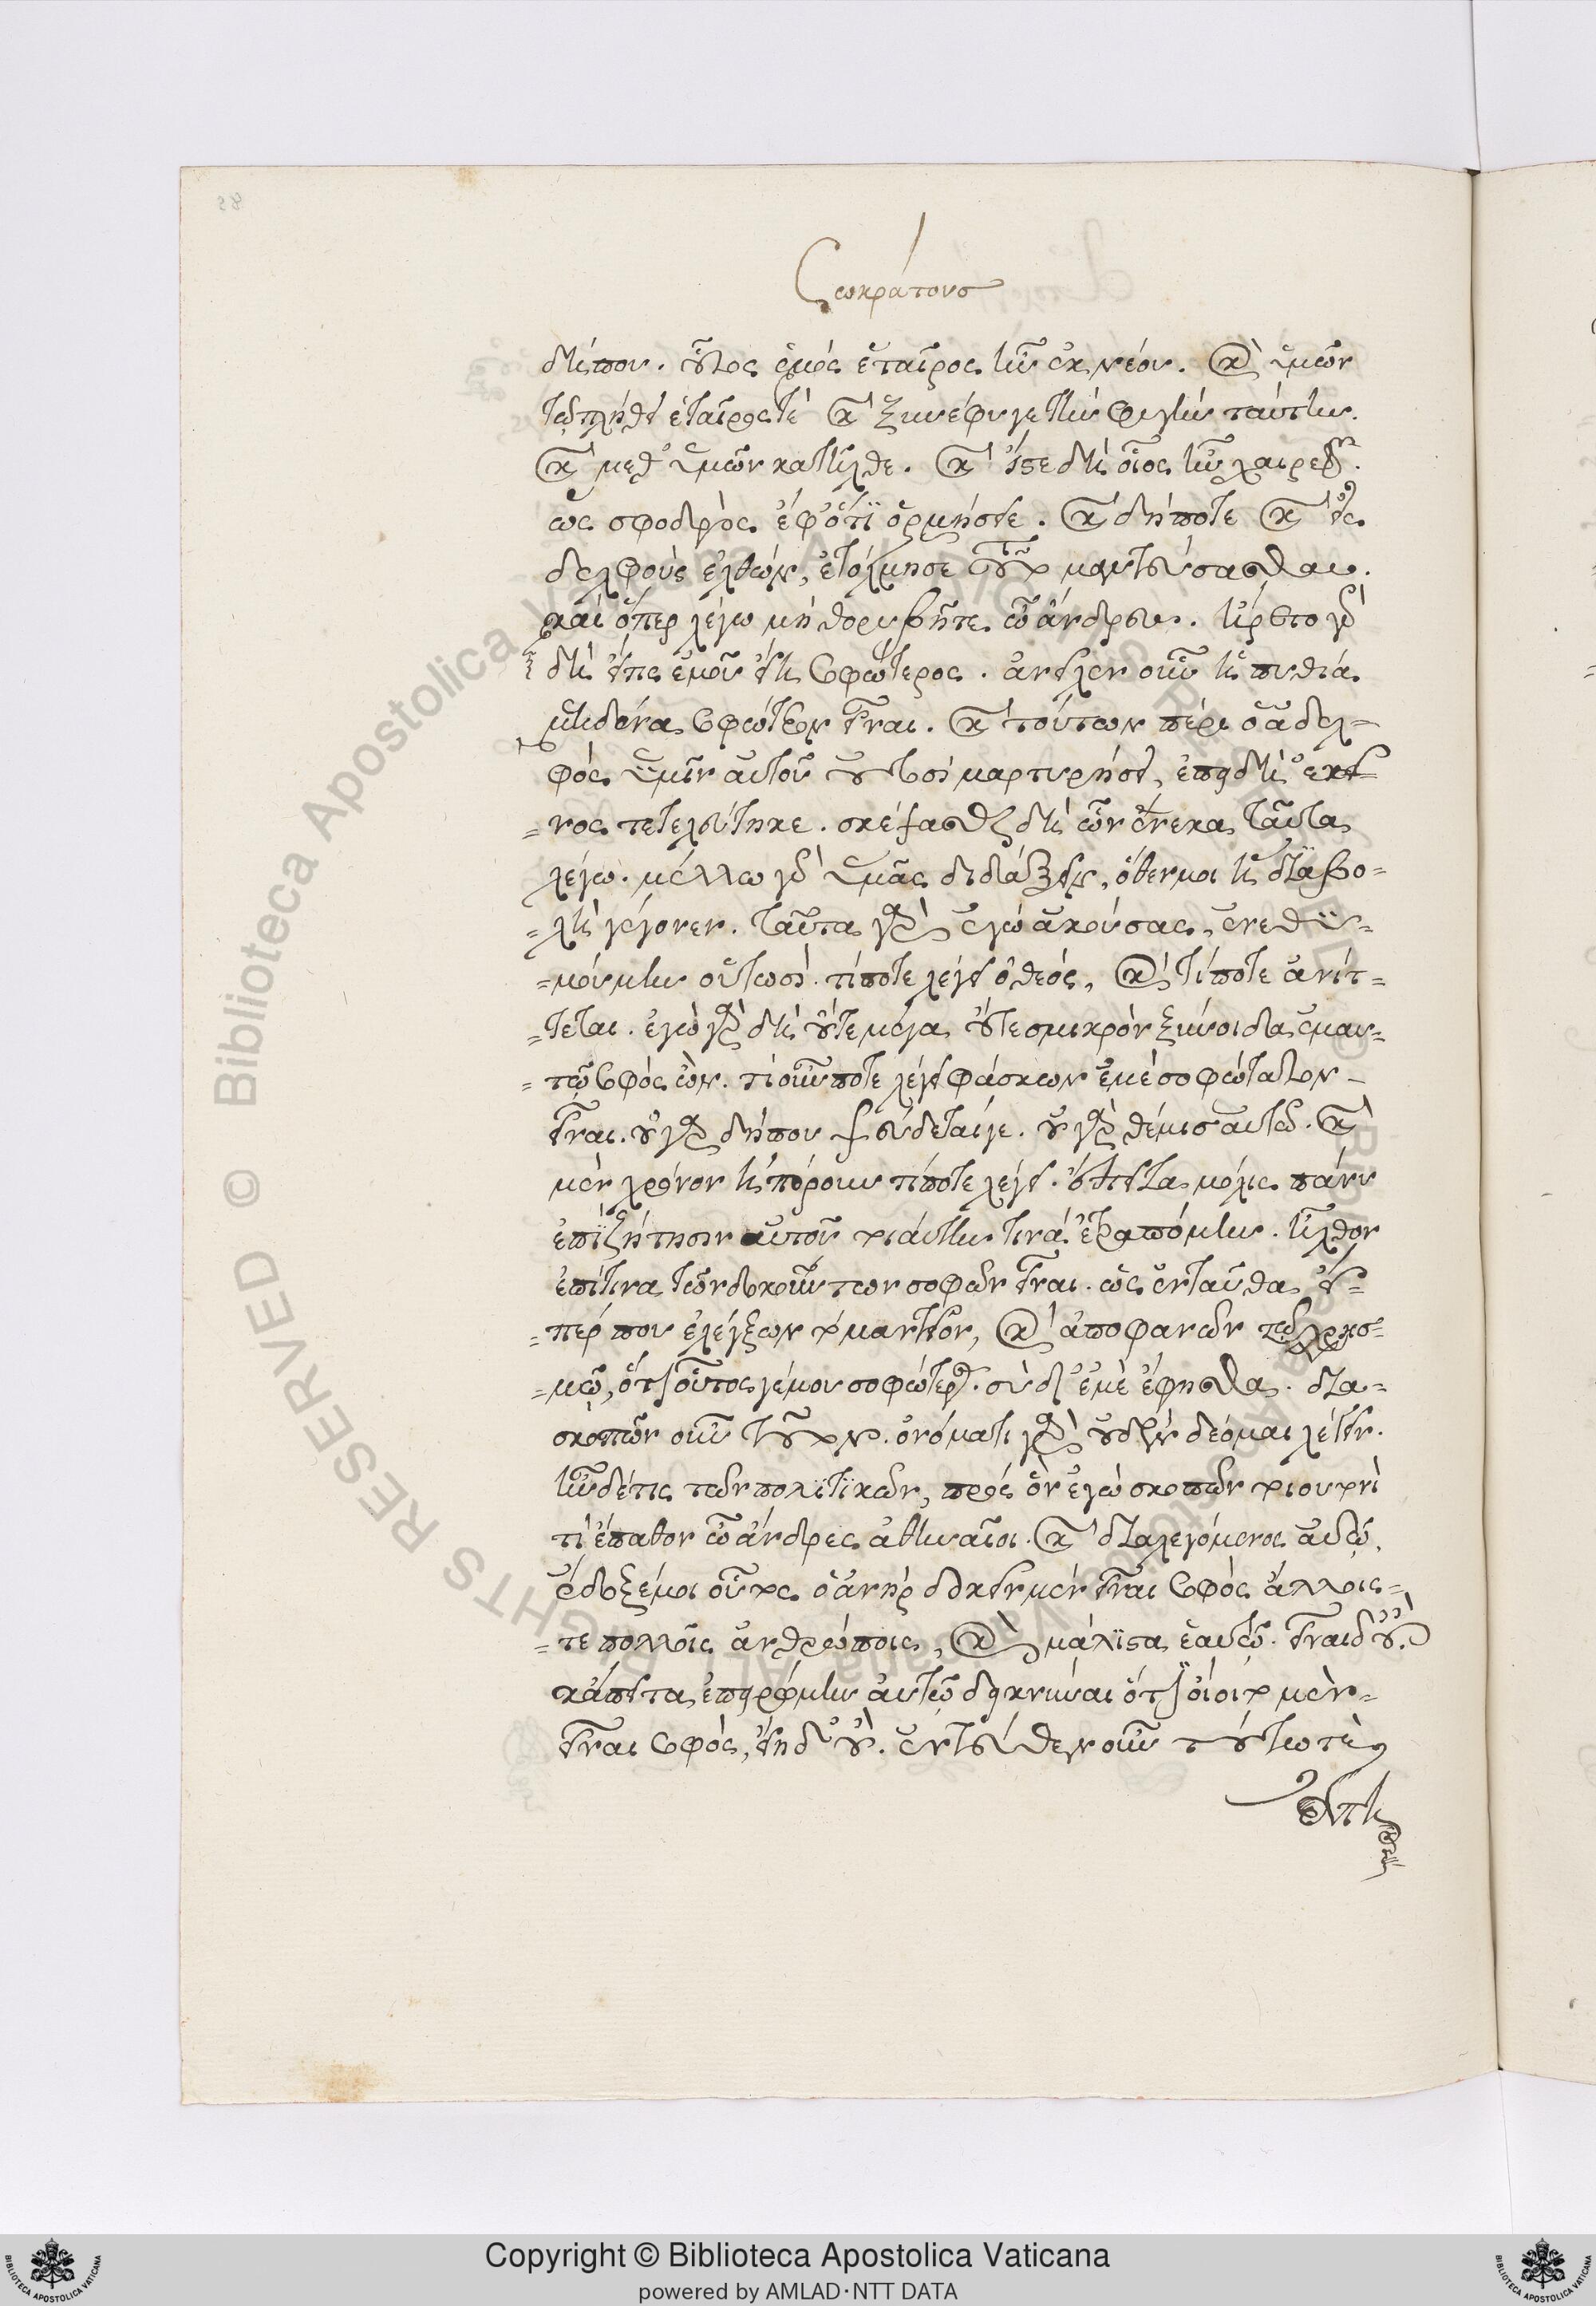 Σωκράτους
δήπου. οὗτος ἐμός ἑταῖρος ἦν ἐκ νέου. καὶ ὑμῶν
τῷ πλήθει ἑταῖρος τὲ καὶ ξυνέφυγε τὴν φυγὴν ταύτην.
καὶ μεθ' ὑμῶν κατῆλθε. καὶ ἴστε δὴ οἷος ἦν χαιρεφῶν.
ὡς σφοδρὸς ἐφ' ὅτι ὁρμήσειε. καὶ δήποτε καὶ εἰς
δελφοὺς ἐλθών, ἐτόλμησε τοῦτο μαντεύσασθαι.
καὶ ὅπερ λέγω μὴ θορυβῆτε ὦ ἄνδρες. ἤρετο γὰρ
δὴ εἴτις ἐμοῦ εἴη σοφώτερος. ἀνεῖλεν οὖν ἡ πυθία
μηδένα σοφώτερον εἶναι. καὶ τούτων πέρι ὁ ἀδελ-
φός ὑμῖν αὐτοῦ οὑτοσὶ μαρτυρήσει, ἐπειδὴ ἐκεῖ-
-νος τετελεύτηκε. σκέψασθε δὴ ὧν ἕνεκα ταῦτα
λέγω. μέλλω γὰρ ὑμᾶς διδάξειν, ὅθεν μοι ἡ διαβο-
-λὴ γέγονεν. ταῦτα γὰρ ἐγὼ ἀκούσας, ἐνεθυ-
-μούμην οὑτωσί. τί ποτε λέγει ὁ θεός, καὶ τί ποτε αἰνίτ-
-τεται. ἐγὼ γὰρ δὴ οὔτε μέγα οὔτε σμικρὸν ξύνοιδα ἐμαυ-
-τῷ σοφὸς ὤν. τί οὖν ποτε λέγει φάσκων ἐμὲ σοφώτατον
εἶναι. οὐ γὰρ δήπου ψεύδεταί γε. οὐ γὰρ θέμις αὐτῷ. καὶ
μὲν χρόνον ἠπόρουν τί ποτε λέγει. ἔπειτα μόλις πάνυ
ἐπὶ ζήτησιν αὐτοῦ τοιαύτην τινὰ ἐτραπόμην. ἦλθον
ἐπί τινα τῶν δοκούντων σοφῶν εἶναι. ὡς ἐνταῦθα εἴ-
-περ που ἐλέγξων τὸ μαντεῖον, καὶ ἀποφανῶν τῷ χρησ-
-μῷ, ὅτι οὗτος γ' ἐμοῦ σοφώτερος. σὺ δ' ἐμὲ ἔφησθα. δια-
σκοπῶν οὖν τοῦτον. ὀνόματι γὰρ οὐδὲν δέομαι λέγειν.
ἦν δέ τις τῶν πολιτικῶν, πρὸς ὃν ἐγὼ σκοπῶν τοιουτονὶ
τὶ ἔπαθον ὦ ἄνδρες ἀθηναῖοι. καὶ διαλεγόμενος αὐτῷ,
ἔδοξέ μοι οὗτος ὁ ἀνὴρ δοκεῖν μὲν εἶναι σοφὸς ἄλλοις
-τε πολλοῖς ἀνθρώποις, καὶ μάλιστα ἑαυτῷ. εἶναι δ' οὔ.
κἄπειτα ἐπειρώμην αὐτῷ δεικνύναι ὅτι οἴοιτο μὲν
εἶναι σοφός, εἴη δ' οὔ. ἐντεῦθεν οὖν τούτω τὲ
ἀπη